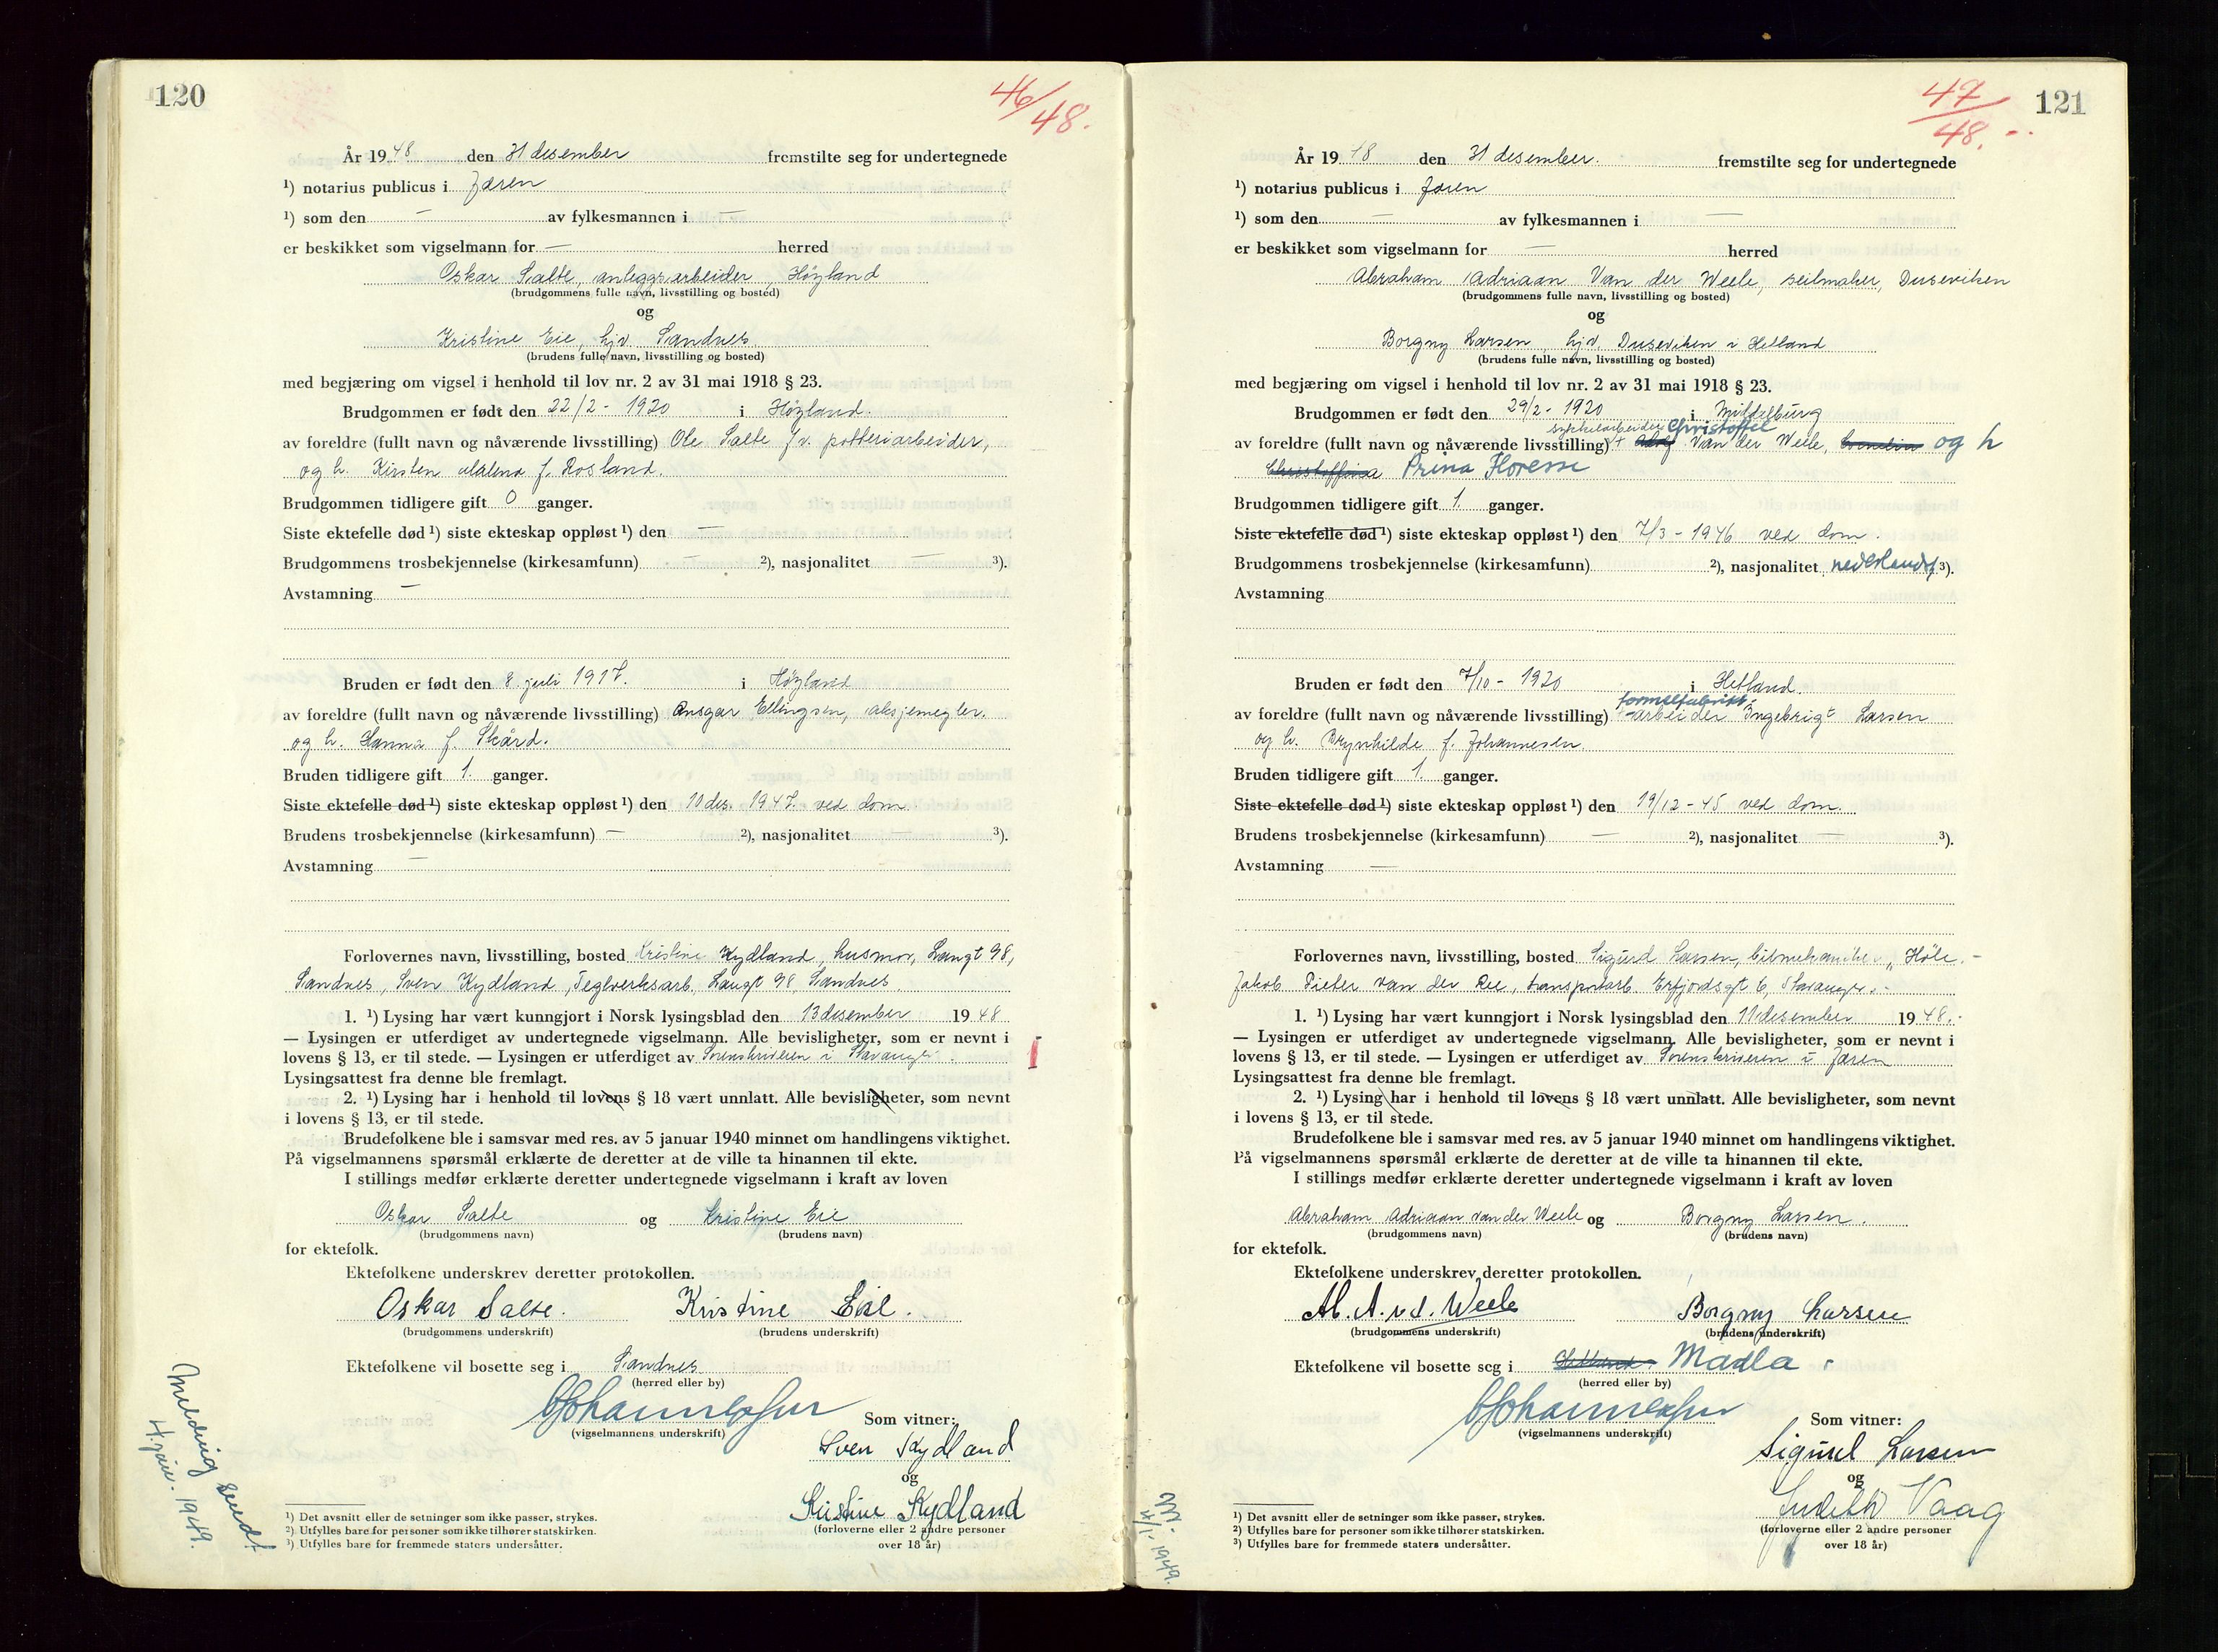 120
46/48.
År 1948 den 31 desember fremstilte seg for undertegnede
¹) notarius publicus i Jæren
¹) som den — av fylkesmannen i —
er beskikket som vigselmann for — herred
Oskar Salte, anleggsarbeider, Høyland
(brudgommens fulle navn, livsstilling og bosted)
og
Kristine Eie, hjv. Sandnes
(brudens fulle navn, livsstilling og bosted)
med begjæring om vigsel i henhold til lov nr. 2 av 31 mai 1918 § 23.
Brudgommen er født den 22/2 - 1920 i Høyland.
av foreldre (fullt navn og nåværende livsstilling) Ole Salte f.v. potteriarbeider,
og h. Kirsten Malena f. Rosland.
Brudgommen tidligere gift 0 ganger.
Siste ektefelle død ¹) siste ekteskap oppløst ¹) den —
Brudgommens trosbekjennelse (kirkesamfunn) — ²), nasjonalitet — ³).
Avstamning —
Bruden er født den 8. juli 1917. i Høyland
av foreldre (fullt navn og nåværende livsstilling) Ansgar Ellingsen, aksjemegler.
og h. Hanna f. Skård.
Bruden tidligere gift 1. ganger.
Siste ektefelle død ¹) siste ekteskap oppløst ¹) den 10 des. 1947. ved dom.
Brudens trosbekjennelse (kirkesamfunn) — ²), nasjonalitet — ³).
Avstamning —
Forlovernes navn, livsstilling, bosted Kristine Kydland, husmor, Langt 98,
Sandnes, Sven Kydland, Teglverksarb. Langt 98, Sandnes.
1. ¹) Lysing har vært kunngjort i Norsk lysingsblad den 13 desember 1948
— Lysingen er utferdiget av undertegnede vigselmann. Alle bevisligheter, som er nevnt i
lovens § 13, er til stede. — Lysingen er utferdiget av Sorenskriveren i Stavanger.
Lysingsattest fra denne ble fremlagt.
2. ¹) Lysing har i henhold til lovens § 18 vært unnlatt. Alle bevisligheter, som nevnt
i lovens § 13, er til stede.
Brudefolkene ble i samsvar med res. av 5 januar 1940 minnet om handlingens viktighet.
På vigselmannens spørsmål erklærte de deretter at de ville ta hinannen til ekte.
I stillings medfør erklærte deretter undertegnede vigselmann i kraft av loven
Oskar Salte og Kristine Eie
(brudgommens navn) (brudens navn)
for ektefolk.
Ektefolkene underskrev deretter protokollen.
Oskar Salte. Kristine Eie.
(brudgommens underskrift) (brudens underskrift)
Ektefolkene vil bosette seg i Sandnes
(herred eller by)
(vigselmannens underskrift)
Som vitner:
Sven Kydland
og
Kristine Kydland
(forloverne eller 2 andre personer
over 18 år)
Melding sendt
4. jan. 1949.
¹) Det avsnitt eller de setninger som ikke passer, strykes.
²) Utfylles bare for personer som ikke tilhører statskirken.
³) Utfylles bare for fremmede staters undersåtter.
121
47/48.
År 1948 den 31 desember. fremstilte seg for undertegnede
¹) notarius publicus i Jæren
¹) som den — av fylkesmannen i —
er beskikket som vigselmann for — herred
Abraham Adriaan Van der Weele, seilmaker, Duseviken
(brudgommens fulle navn, livsstilling og bosted)
og
Borgny Larsen, hjv. Duseviken i Hetland
(brudens fulle navn, livsstilling og bosted)
med begjæring om vigsel i henhold til lov nr. 2 av 31 mai 1918 § 23.
Brudgommen er født den 29/2 - 1920 i Middelburg
Christoffel
av foreldre (fullt navn og nåværende livsstilling) Van der Weele, og h
Prina Floresse
Brudgommen tidligere gift 1. ganger.
Siste ektefelle død ¹) siste ekteskap oppløst ¹) den 7/3 - 1946 ved dom.
Brudgommens trosbekjennelse (kirkesamfunn) ²), nasjonalitet nederlandsk ³).
Avstamning
Bruden er født den 7/10 - 1920 i Hetland.
av foreldre (fullt navn og nåværende livsstilling) arbeider Ingebrigt Larsen
og h. Brynhilde f. Johannesen.
Bruden tidligere gift 1. ganger.
Siste ektefelle død ¹) siste ekteskap oppløst ¹) den 19/12 - 45 ved dom.
Brudens trosbekjennelse (kirkesamfunn) — ²), nasjonalitet — ³).
Avstamning —
Forlovernes navn, livsstilling, bosted Sigurd Larsen, bilmekaniker, Høle. -
Jakob Pieter van der Ree, transportarb. Erfjordsgt 6, Stavanger. -
1. ¹) Lysing har vært kunngjort i Norsk lysingsblad den 11 desember 1948. -
— Lysingen er utferdiget av undertegnede vigselmann. Alle bevisligheter, som er nevnt i
lovens § 13, er til stede. — Lysingen er utferdiget av Sorenskriveren i Jæren
Lysingsattest fra denne ble fremlagt.
2. ¹) Lysing har i henhold til lovens § 18 vært unnlatt. Alle bevisligheter, som nevnt
i lovens § 13, er til stede.
Brudefolkene ble i samsvar med res. av 5 januar 1940 minnet om handlingens viktighet.
På vigselmannens spørsmål erklærte de deretter at de ville ta hinannen til ekte.
I stillings medfør erklærte deretter undertegnede vigselmann i kraft av loven
Abraham Adriaan van der Weele og Borgny Larsen.
(brudgommens navn) (brudens navn)
for ektefolk.
Ektefolkene underskrev deretter protokollen.
Ab. A. v. d. Weele Borgny Larsen
(brudgommens underskrift) (brudens underskrift)
Ektefolkene vil bosette seg i Madla
(herred eller by)
(vigselmannens underskrift)
Som vitner:
Sigurd Larsen
og
Judith Vaag
(forloverne eller 2 andre personer
over 18 år)
4/1. 1949.
¹) Det avsnitt eller de setninger som ikke passer, strykes.
²) Utfylles bare for personer som ikke tilhører statskirken.
³) Utfylles bare for fremmede staters undersåtter.